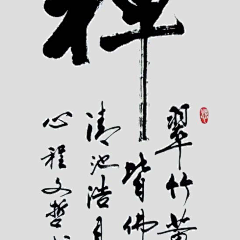 禅
翠竹黄
皆佛
清池浩月
心程文哲